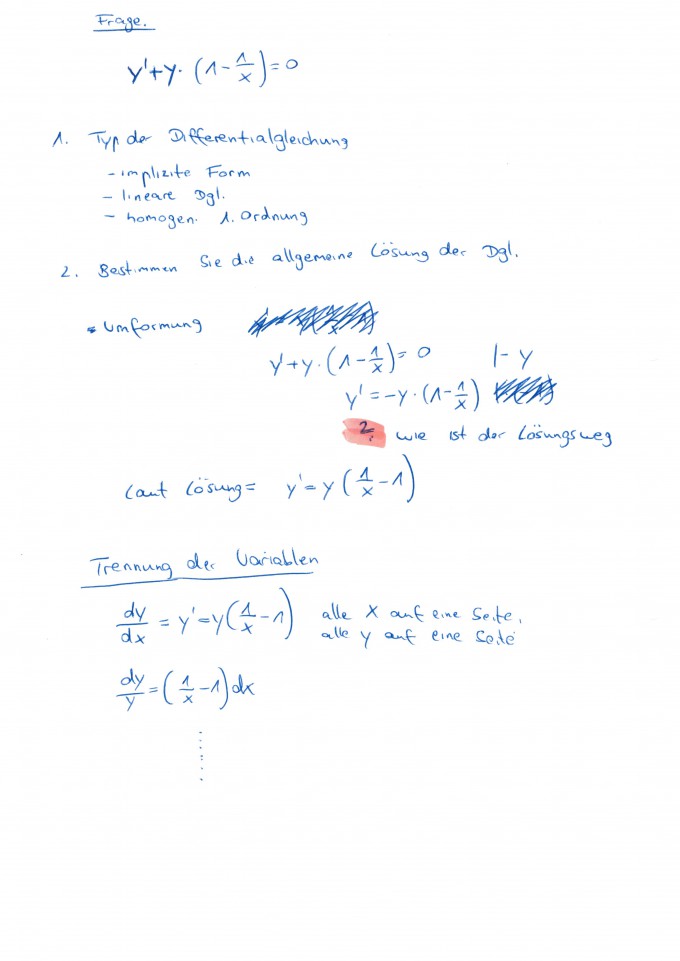 Frage.
y'+y·(1-1/x)=0
1. Typ der Differentialgleichung
- implizite Form
- lineare Dgl.
- homogen. 1. Ordnung
2. Bestimmen Sie die allgemeine Lösung der Dgl.
• Umformung
y'+y·(1-1/x)=0 |-y
y'=-y·(1-1/x)
? wie ist der Lösungsweg
Laut Lösung= y'=y(1/x-1)
Trennung der Variablen
dy/dx = y'=y(1/x-1) alle x auf eine Seite,
alle y auf eine Seite
dy/y=(1/x-1)dx
.......